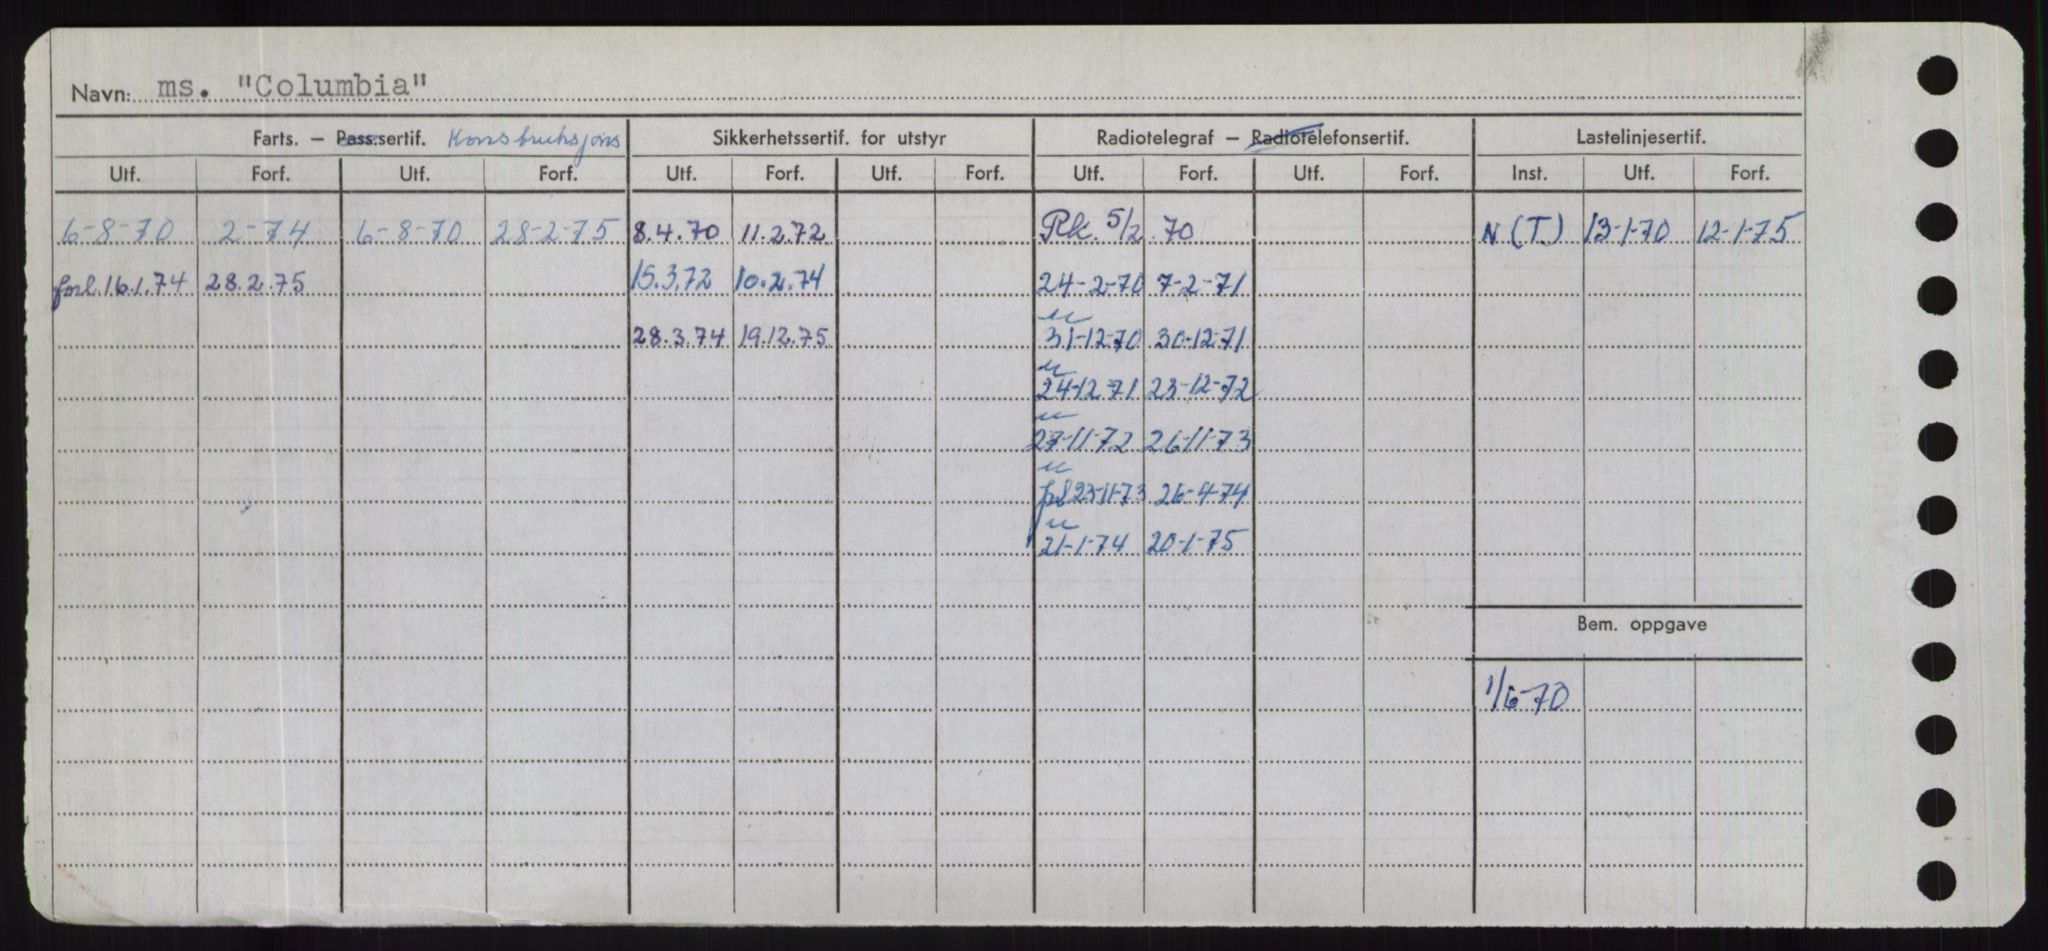 Navn: ms. "Columbia"
Farts. — Pass.sertif. Konstruksjons Sikkerhetssertif. for utstyr Radiotelegraf — Radiotelefonsertif. Lastelinjesertif.
Utf. Forf. Utf. Forf. Utf. Forf. Utf. Forf. Utf. Forf. Utf. Forf. Inst. Utf. Forf.
6-8-70 2-74 6-8-70 28-2-75 8.4.70 11.2.72 Rk. 5/2.70 N (T.) 13-1-70 12-1-75
forl. 16.1.74 28.2.75 15.3.72 10.2.74 24-2-70 7-2-71
28.3.74 19.12.75 31-12-70 30-12-71
24-12-71 23-12-72
27-11-72 26-11-73
23-11-73 26-4-74
21-1-74 20-1-75
Bem. oppgave
1/6-70